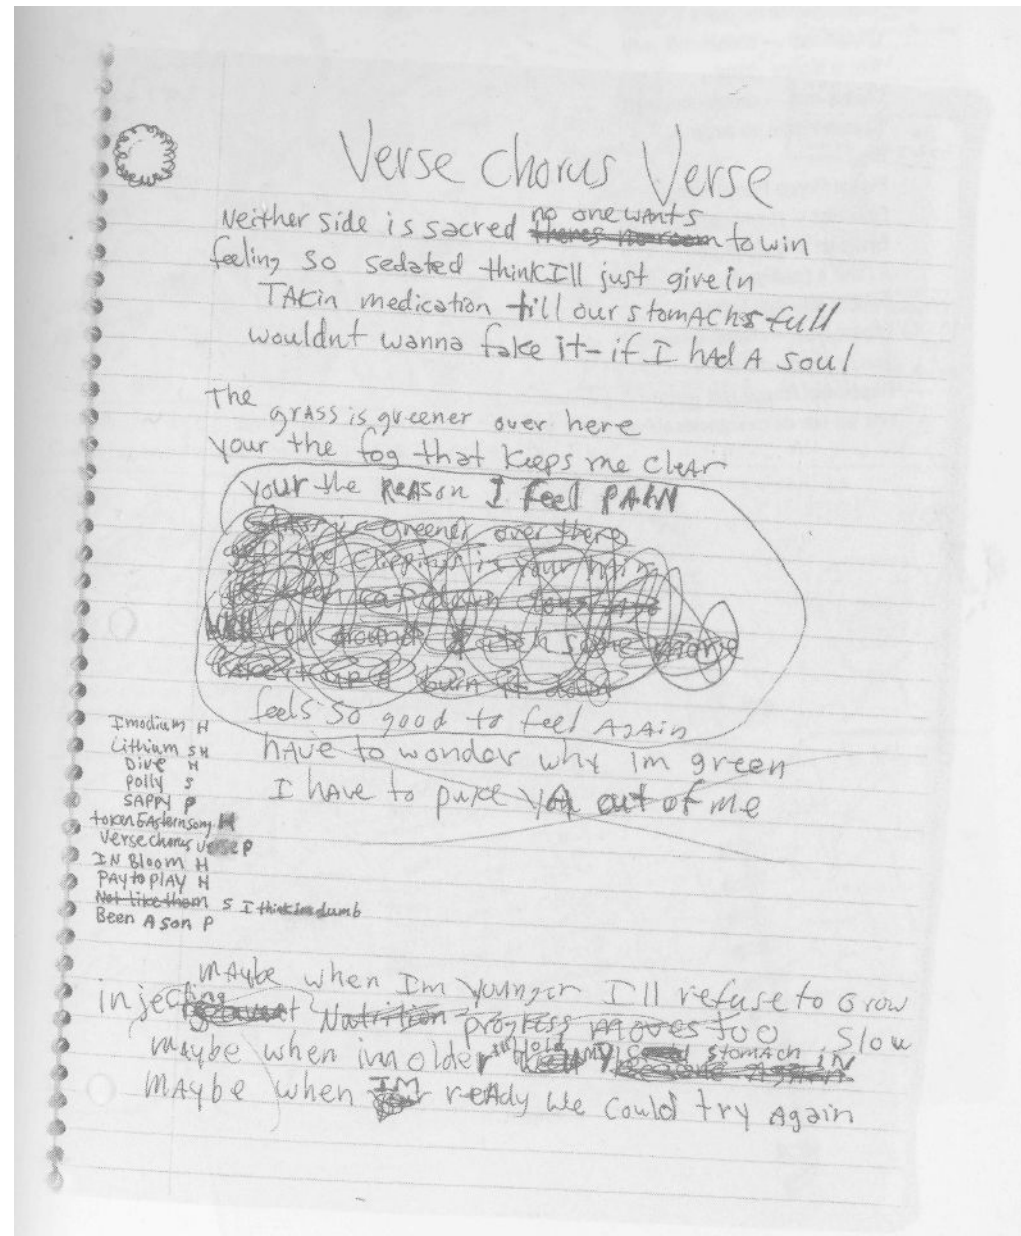 Verse Chorus Verse
Neither side is sacred no one wants to win
feeling so sedated think Ill just give in
TAKin medication till our stomAChs full
wouldnt wanna fake it - if I hAd A soul
The grAss is greener over here
your the fog that keeps me cleAr
your the REASON I feel PAIN
greener over there
the clippings is your
cat down
roll around some more
burn it down
feels so good to feel AgAin
hAve to wonder why Im green
I hAve to puke you out of me
Imodium H
Lithium S H
Dive H
Polly S
SAPPY P
token EAstern song H
Verse chorus verse P
IN Bloom H
PAY to PlAY H
Not like them S I think Im dumb
Been A son P
MAybe when Im younger I'll refuse to Grow
injecting Nutrition progress moves too slow
maybe when im older ill hold my stomAch iN
MAybe when IM reAdy we could try AgAin